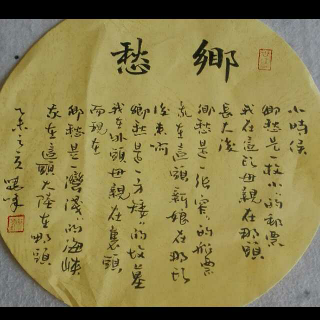 鄉愁
小時候
鄉愁是一枚小小的郵票
我在這頭母親在那頭
長大後
鄉愁是一張窄窄的船票
我在這頭新娘在那頭
後來啊
鄉愁是一方矮矮的墳墓
我在外頭母親在裏頭
而現在
鄉愁是一灣淺淺的海峽
我在這頭大陸在那頭
乙未之